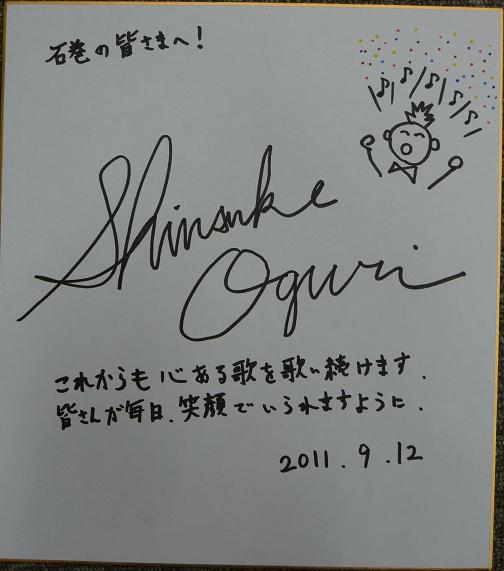 石巻の皆さまへ!
Shinsuke
Oguri
これからも心ある歌を歌い続けます.
皆さんが毎日、笑顔でいられますように.
2011.9.12